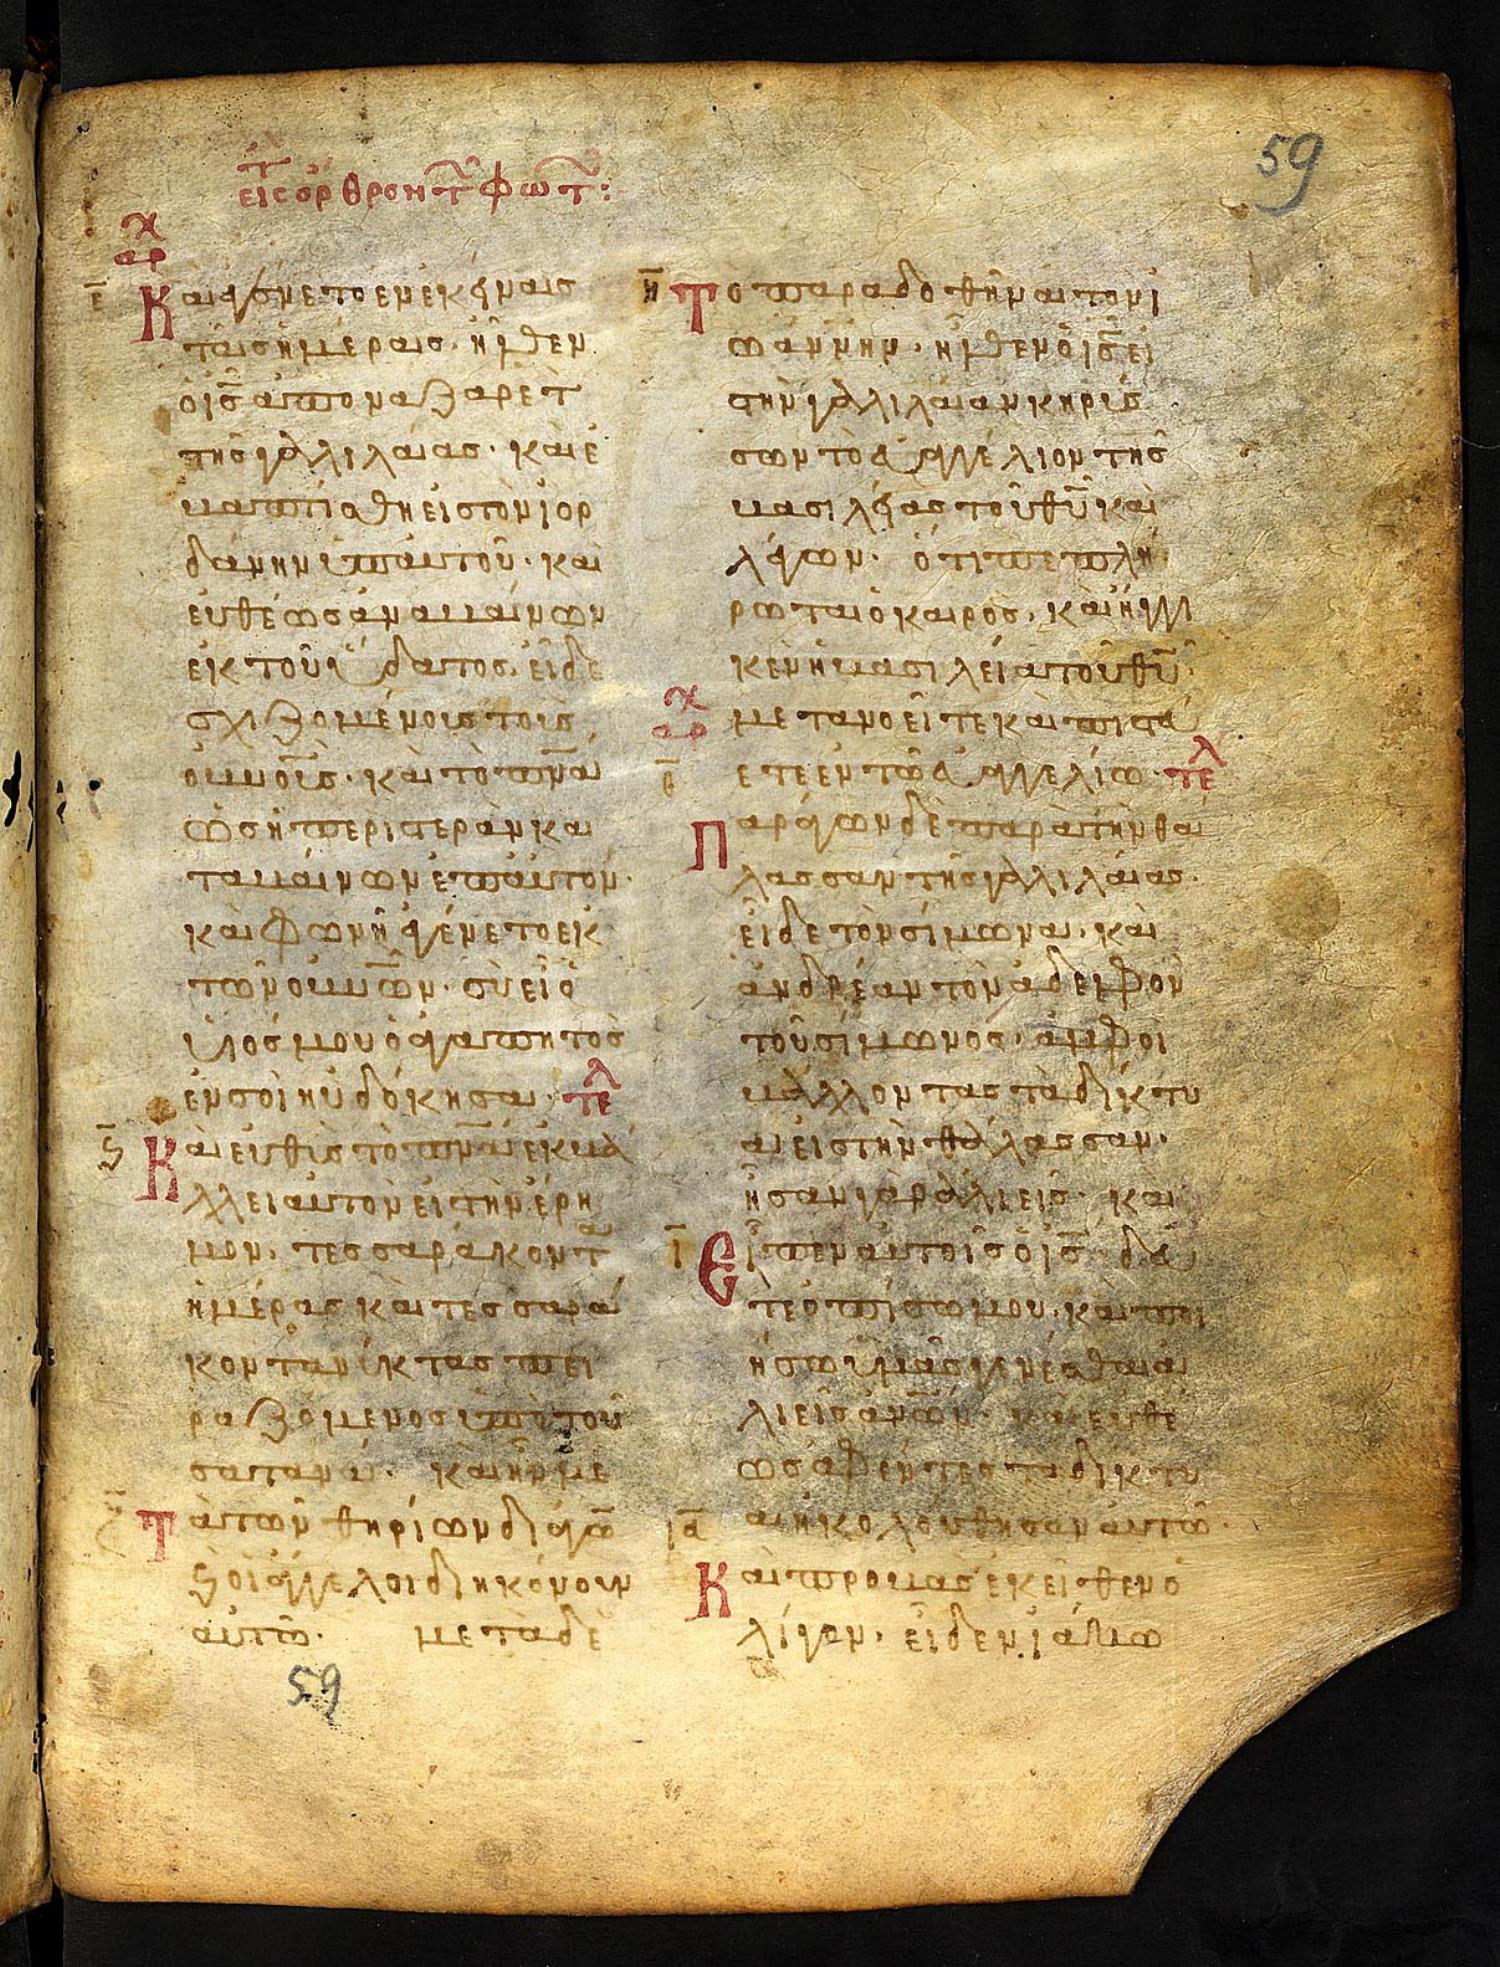 59
εις ορθρον τ̑ φωτ:
ε̄
Και εγένετο εν εκείναις
ταις ημέραις· ήλθεν
ὁ ι̅σ̅ απο ναζαρὲτ
της γαλιλαίας· και ε
βαπτίσθη εις τὸν ἰορ
δάνην ὑπ αυτοῦ· και
ευθέως αναβαίνων
εκ τοῦ ὕδατος· εἶδε
σχιζομένους τοὺς
ο̅υ̅νο̅υ̅ς· και τὸ π̅ν̅α̅
ὡσὴ περιστερὰν κα
ταβαίνων επ αυτόν·
και φωνὴ εγένετο εκ
τῶν ουνω̅ν· σὺ εἶ ὁ
υἱός μου ὁ αγαπητὸς
εν σοὶ ηυδόκησα· τελ
ς̄
Και ευθὺς τὸ π̅ν̅α̅ εκβά
λλει αυτὸν ει τὴν έρη
μον· τεσσαράκοντα
ημέρας και τεσσαρά
κοντα νύκτας πει
ραζόμενος ὑπὸ τοῦ
σατανᾶ· και ἦν με
τὰ τῶν θηρίων διάγω̅
ϛ οἱ άγγελοι διηκόνουν
αυτῶ· μετὰ δὲ
59
η̄
Τὸ παραδοθῆναι τὸν ἰ
ωάννην· ἦλθεν ὁ ι̅σ̅ εἰ
στὴν γαλιλαίαν κηρύσ
σων τὸ ευαγγέλιον τῆς
βασιλείας τοῦ θ̅υ̅ και
λέγων· ότι πεπλή
ρωται ὁ καιρὸς· και ήγγι
κεν η βασιλεία τοῦ θ̅υ̅·
μετανοεῖτε και πιστεύ
ετε εν τῶ ευαγγελίω· τελ
θ̄
Παράγων δὲ παρὰ τὴν θα
λασσαν τῆς γαλιλαίας·
εἶδε τὸν σίμωνα· και
ανδρέαν τὸν αδελφὸν
τοῦ σίμωνος· αμφοι
βάλλοντας τὰ δίκτυ
α εις τὴν θάλασσαν·
ῆσαν γὰρ αλιεῖς· και
ῑ
Εἶπεν αυτοῖς ὁ ι̅σ̅ δεῦ
τε οπίσω μου· και ποι
ήσω ὑμᾶς γενέσθαι α
λιεῖς α̅ν̅ω̅ν̅· και ευθέ
ως αφέντες τα δίκτυ
α ηκολούθησαν αυτῶ·
ῑᾱ
Και προβὰς εκεῖθεν ὀ
λίγον· εἶδεν ιάκω